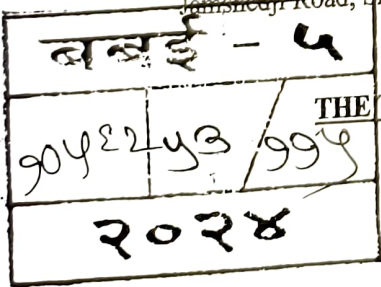 Jamshedji Road,
बबई - ५
THE
१०५६२ ५३ / ११५
२०२४